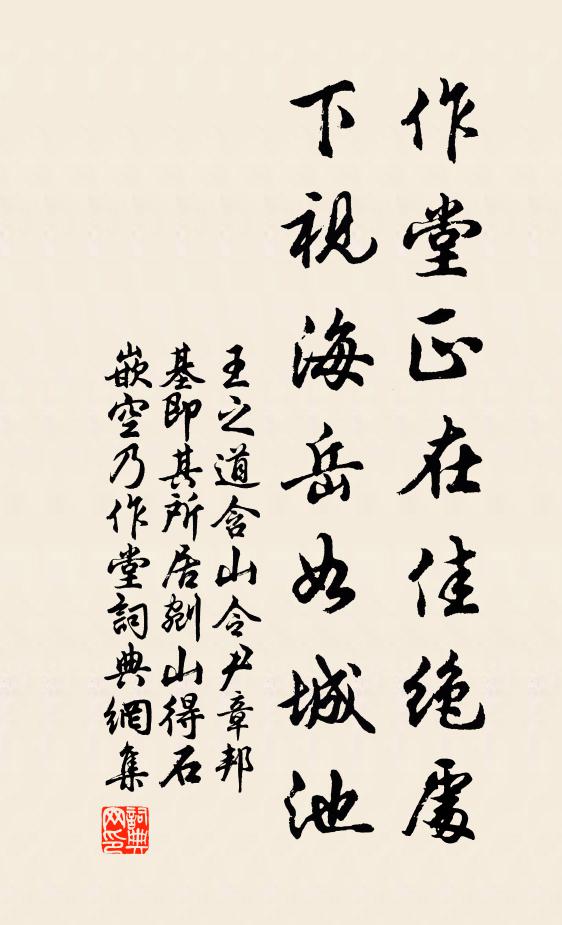 作堂正在佳絶處
下視海岳如城池
王之道含山令尹章邦
基即其所居剜山得石
嵌空乃作堂詞典網集
詞典網印